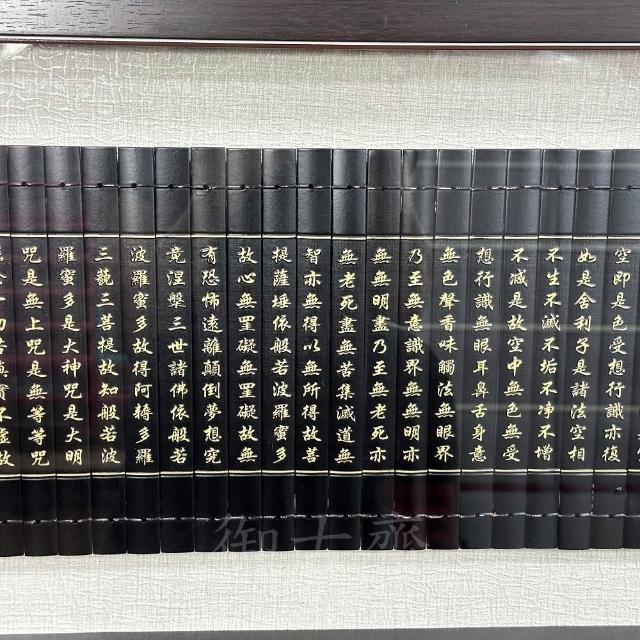 空即是色受想行識亦復
如是舍利子是諸法空相
不生不滅不垢不净不增
不減是故空中無色無受
想行識無眼耳鼻舌身意
無色聲香味觸法無眼界
乃至無意識界無無明亦
無無明盡乃至無老死亦
無老死盡無苦集滅道無
智亦無得以無所得故菩
提薩埵依般若波羅蜜多
故心無罣礙無罣礙故無
有恐怖遠離顛倒夢想究
竟涅槃三世諸佛依般若
波羅蜜多故得阿耨多羅
三藐三菩提故知般若波
羅蜜多是大神咒是大明
咒是無上咒是無等等咒
御士齋